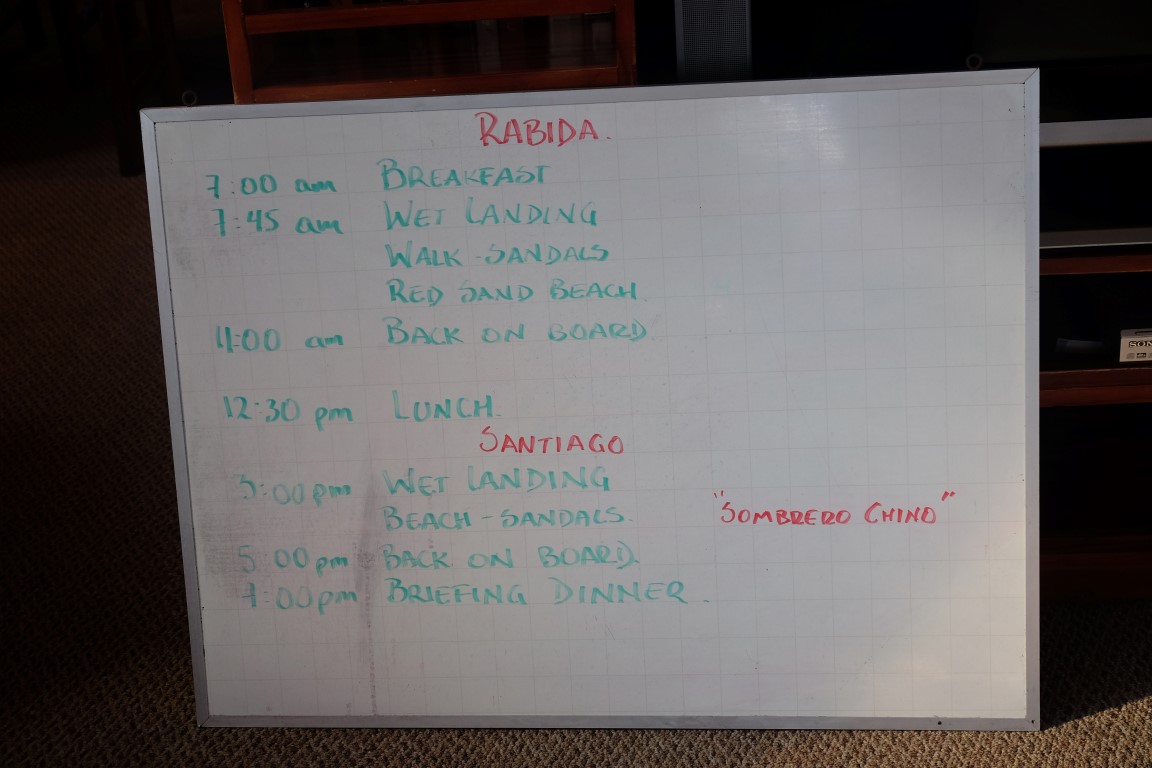 RABIDA.
7:00 am BREAKFAST
7:45 am WET LANDING
WALK - SANDALS
RED SAND BEACH
11:00 am BACK ON BOARD.
12:30 pm LUNCH.
SANTIAGO
3:00 pm WET LANDING
BEACH - SANDALS.
"SOMBRERO CHINO"
5:00 pm BACK ON BOARD.
7:00 pm BRIEFING DINNER.